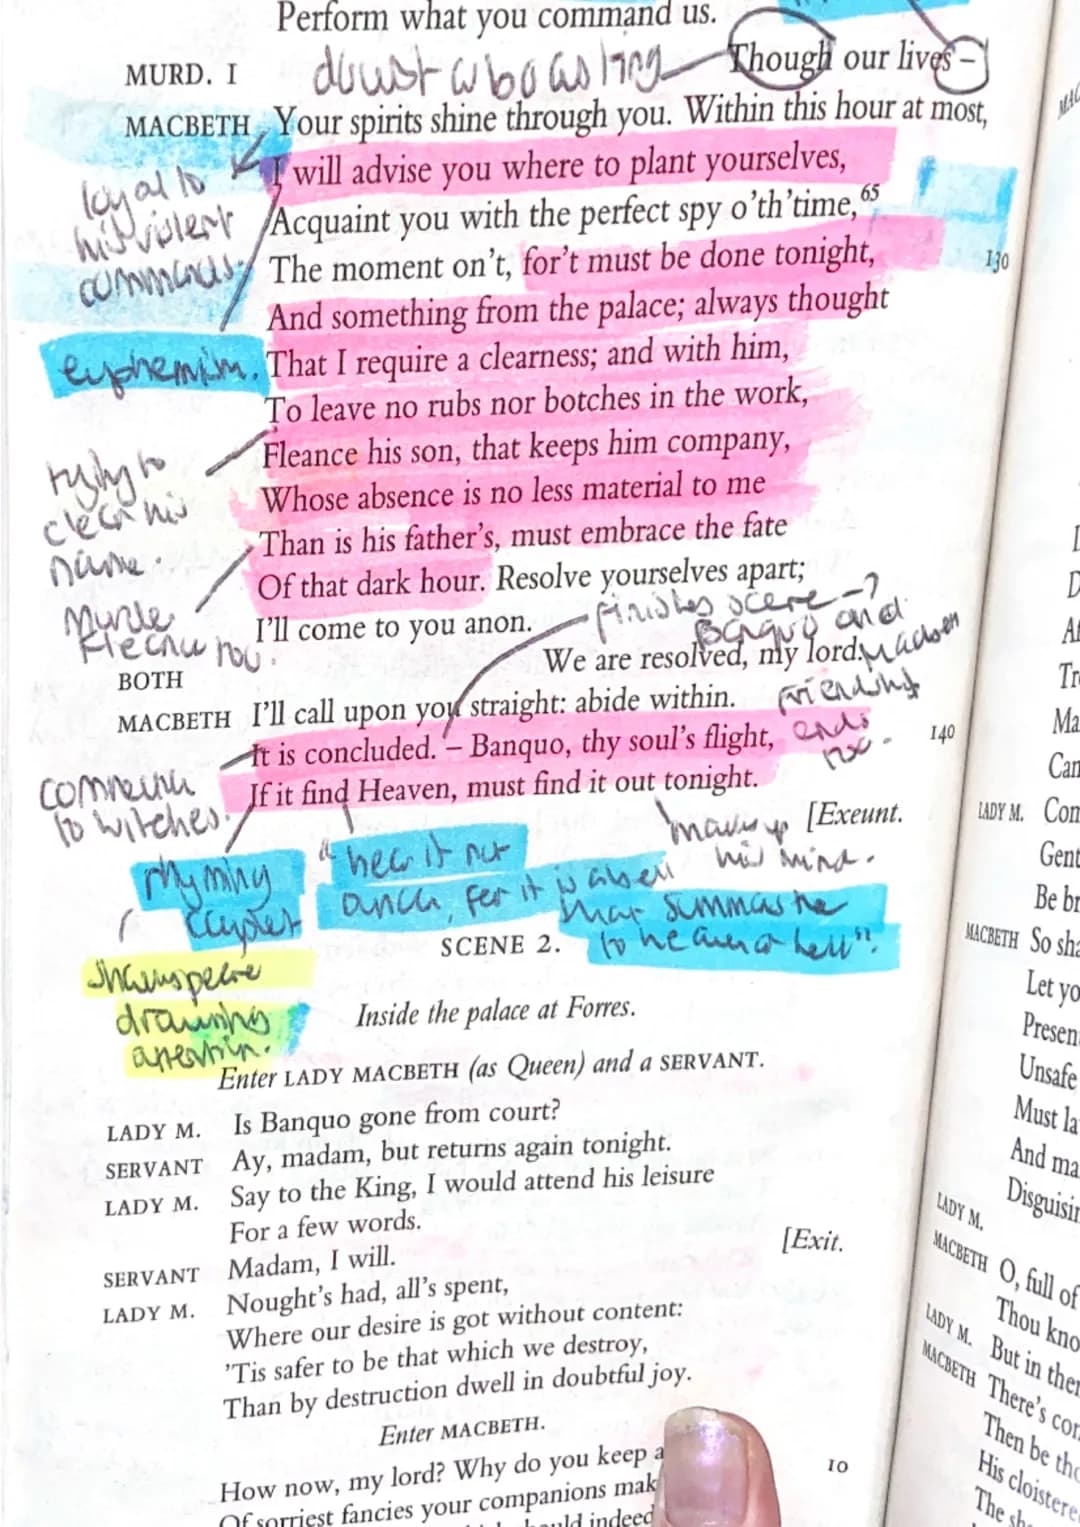 Perform what you command us.
MURD. I Though our lives –
doust w boasting
MACBETH Your spirits shine through you. Within this hour at most,
I will advise you where to plant yourselves,
loyal to
his violent
commands.
Acquaint you with the perfect spy o'th'time, 65
The moment on't, for't must be done tonight, 130
And something from the palace; always thought
euphemim. That I require a clearness; and with him,
To leave no rubs nor botches in the work,
Fleance his son, that keeps him company,
trying to
clear his
name.
Whose absence is no less material to me
Than is his father's, must embrace the fate
Of that dark hour. Resolve yourselves apart;
Murder
Fleance too.
I'll come to you anon.
finishes scene -?
Banquo and
friendship
ends
BOTH We are resolved, my lord.
MACBETH I'll call upon you straight: abide within.
It is concluded. – Banquo, thy soul's flight, 140
If it find Heaven, must find it out tonight.
to witches.
makes up
his mind.
[Exeunt.
rhyming
couplet
"hear it not
for it is a bell
that summons the
to heaven or hell".
shakespeare
drawing
attention.
SCENE 2.
Inside the palace at Forres.
Enter LADY MACBETH (as Queen) and a SERVANT.
LADY M. Is Banquo gone from court?
SERVANT Ay, madam, but returns again tonight.
LADY M. Say to the King, I would attend his leisure
For a few words.
SERVANT Madam, I will. [Exit.
LADY M. Nought's had, all's spent,
Where our desire is got without content:
'Tis safer to be that which we destroy,
Than by destruction dwell in doubtful joy.
Enter MACBETH.
How now, my lord? Why do you keep a
Of sorriest fancies your companions mak 10
indeed
LADY M. Con
Gent
Be br
MACBETH So sha
Let yo
Presen
Unsafe
Must la
And ma
Disguisin
LADY M.
MACBETH O, full of
Thou kno
LADY M. But in ther
MACBETH There's con
Then be tho
His cloistere
The sh